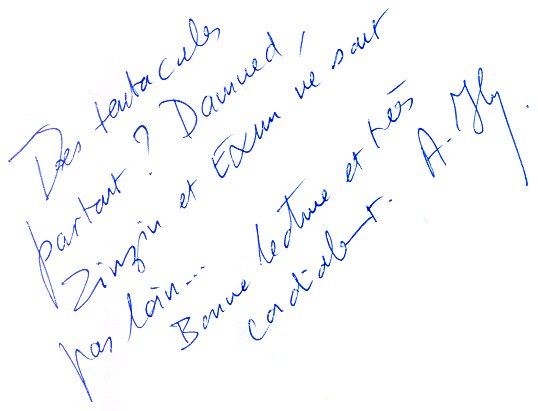 Des tentacules
partout ? Damned,
Zinzin et Exum ne sont
pas loin...
Bonne lecture et très
cordialt. A.